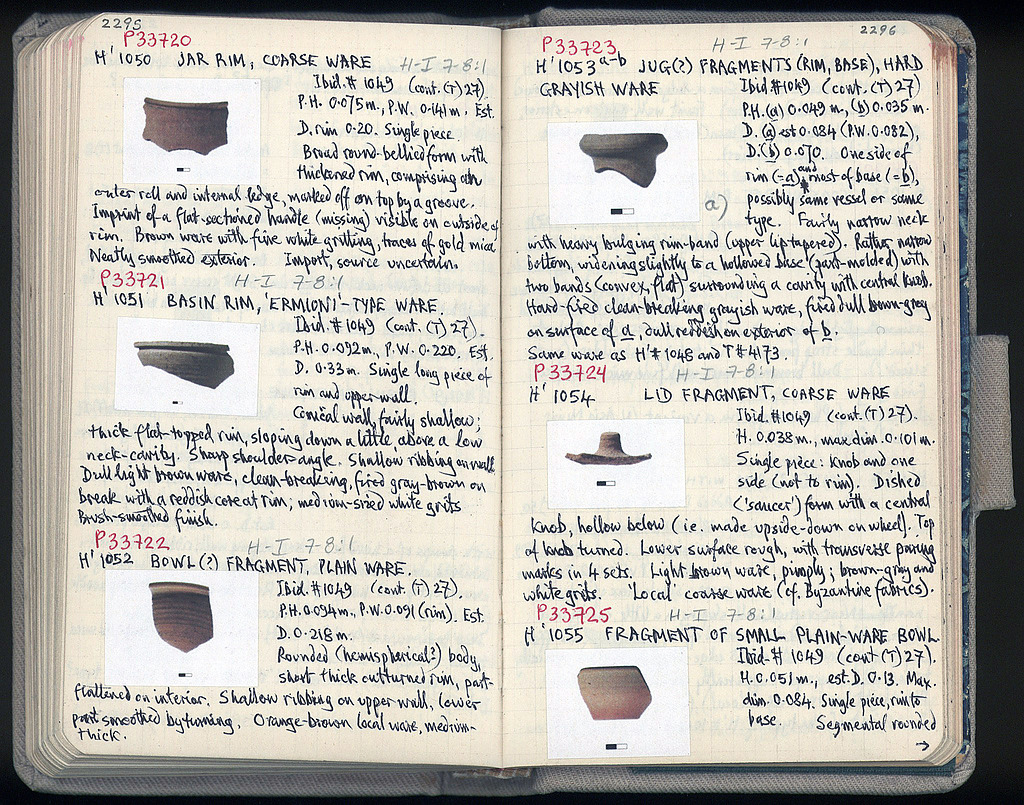 2295
P33720
H'1050 JAR RIM, COARSE WARE H-I 7-8:1
Ibid. # 1049 (cont. (T) 27).
P.H. 0.075m., P.W. 0.141m. Est.
D. rim 0.20. Single piece.
Broad round-bellied form with
thickened rim, comprising an
outer roll and internal ledge, marked off on top by a groove.
Imprint of a flat-sectioned handle (missing) visible on outside of
rim. Brown ware with fine white gritting, traces of gold mica
Neatly smoothed exterior. Import, source uncertain.
P33721 H-I 7-8:1
H'1051 BASIN RIM, 'ERMIONI'-TYPE WARE.
Ibid. # 1049 (cont. (T) 27).
P.H. 0.092m., P.W. 0.220. Est.
D. 0.33m. Single long piece of
rim and upper wall.
Conical wall, fairly shallow;
thick flat-topped rim, sloping down a little above a low
neck-cavity. Sharp shoulder angle. Shallow ribbing on wall
Dull light brown ware, clean-breaking, fired gray-brown on
break with a reddish core at rim; medium-sized white grits
Brush-smoothed finish.
P33722 H-I 7-8:1
H'1052 BOWL(?) FRAGMENT, PLAIN WARE.
Ibid. # 1049 (cont. (T) 27).
P.H. 0.094m., P.W. 0.091 (rim). Est.
D. 0.218m.
Rounded (hemispherical?) body,
short thick outturned rim, part-
flattened on interior. Shallow ribbing on upper wall, lower
part smoothed by turning. Orange-brown local ware, medium-
thick.
2296
P33723 H-I 7-8:1
H'1053 a-b JUG(?) FRAGMENTS (RIM, BASE), HARD
GRAYISH WARE Ibid # 1049 (cont. (T) 27)
P.H. (a) 0.049m, (b) 0.035m.
D. (a) est 0.084 (P.W. 0.082),
D. (b) 0.070. One side of
rim (=a), and most of base (=b),
possibly same vessel or same
a)
type. Fairly narrow neck
with heavy bulging rim-band (upper lip tapered). Rather narrow
bottom, widening slightly to a hollowed base (part-molded) with
two bands (convex, flat) surrounding a cavity with central knob.
Hard-fired clean-breaking grayish ware, fired dull brown-grey
on surface of a, dull reddish on exterior of b.
Same ware as H'# 1048 and T # 4173.
P33724 H-I 7-8:1
H'1054 LID FRAGMENT, COARSE WARE
Ibid. # 1049 (cont. (T) 27).
H. 0.038m., max dim. 0.101m.
Single piece: knob and one
side (not to rim). Dished
('saucer') form with a central
knob, hollow below (i.e. made upside-down on wheel). Top
of knob turned. Lower surface rough, with transverse paring
marks in 4 sets. Light brown ware, pimply; brown-gray and
white grits. 'Local' coarse ware (cf. Byzantine fabrics).
P33725 H-I 7-8:1
H'1055 FRAGMENT OF SMALL PLAIN-WARE BOWL
Ibid # 1049 (cont (T) 27).
H. 0.051m., est. D. 0.13. Max.
dim. 0.084. Single piece, rim to
base. Segmental rounded
→